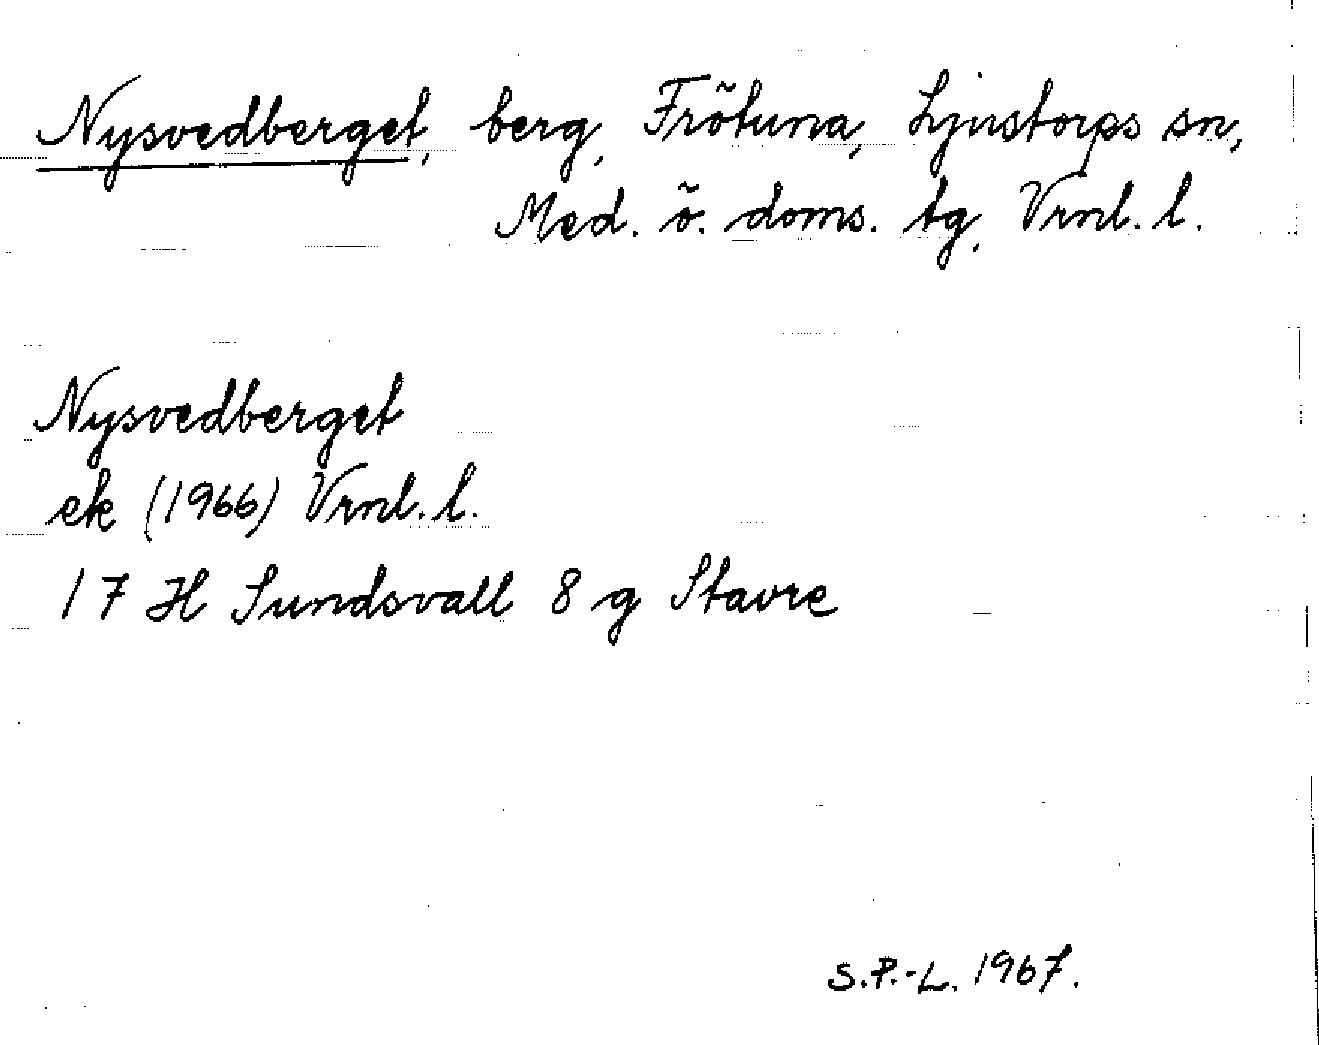 Nysvedberget, berg, Frötuna, Ljustorps sn,
Med. ö. doms. tg, Vrnl. l.
Nysvedberget
ek (1966) Vrnl. l.
17 H Sundsvall 8 g Stavre
S.P.-L. 1967.